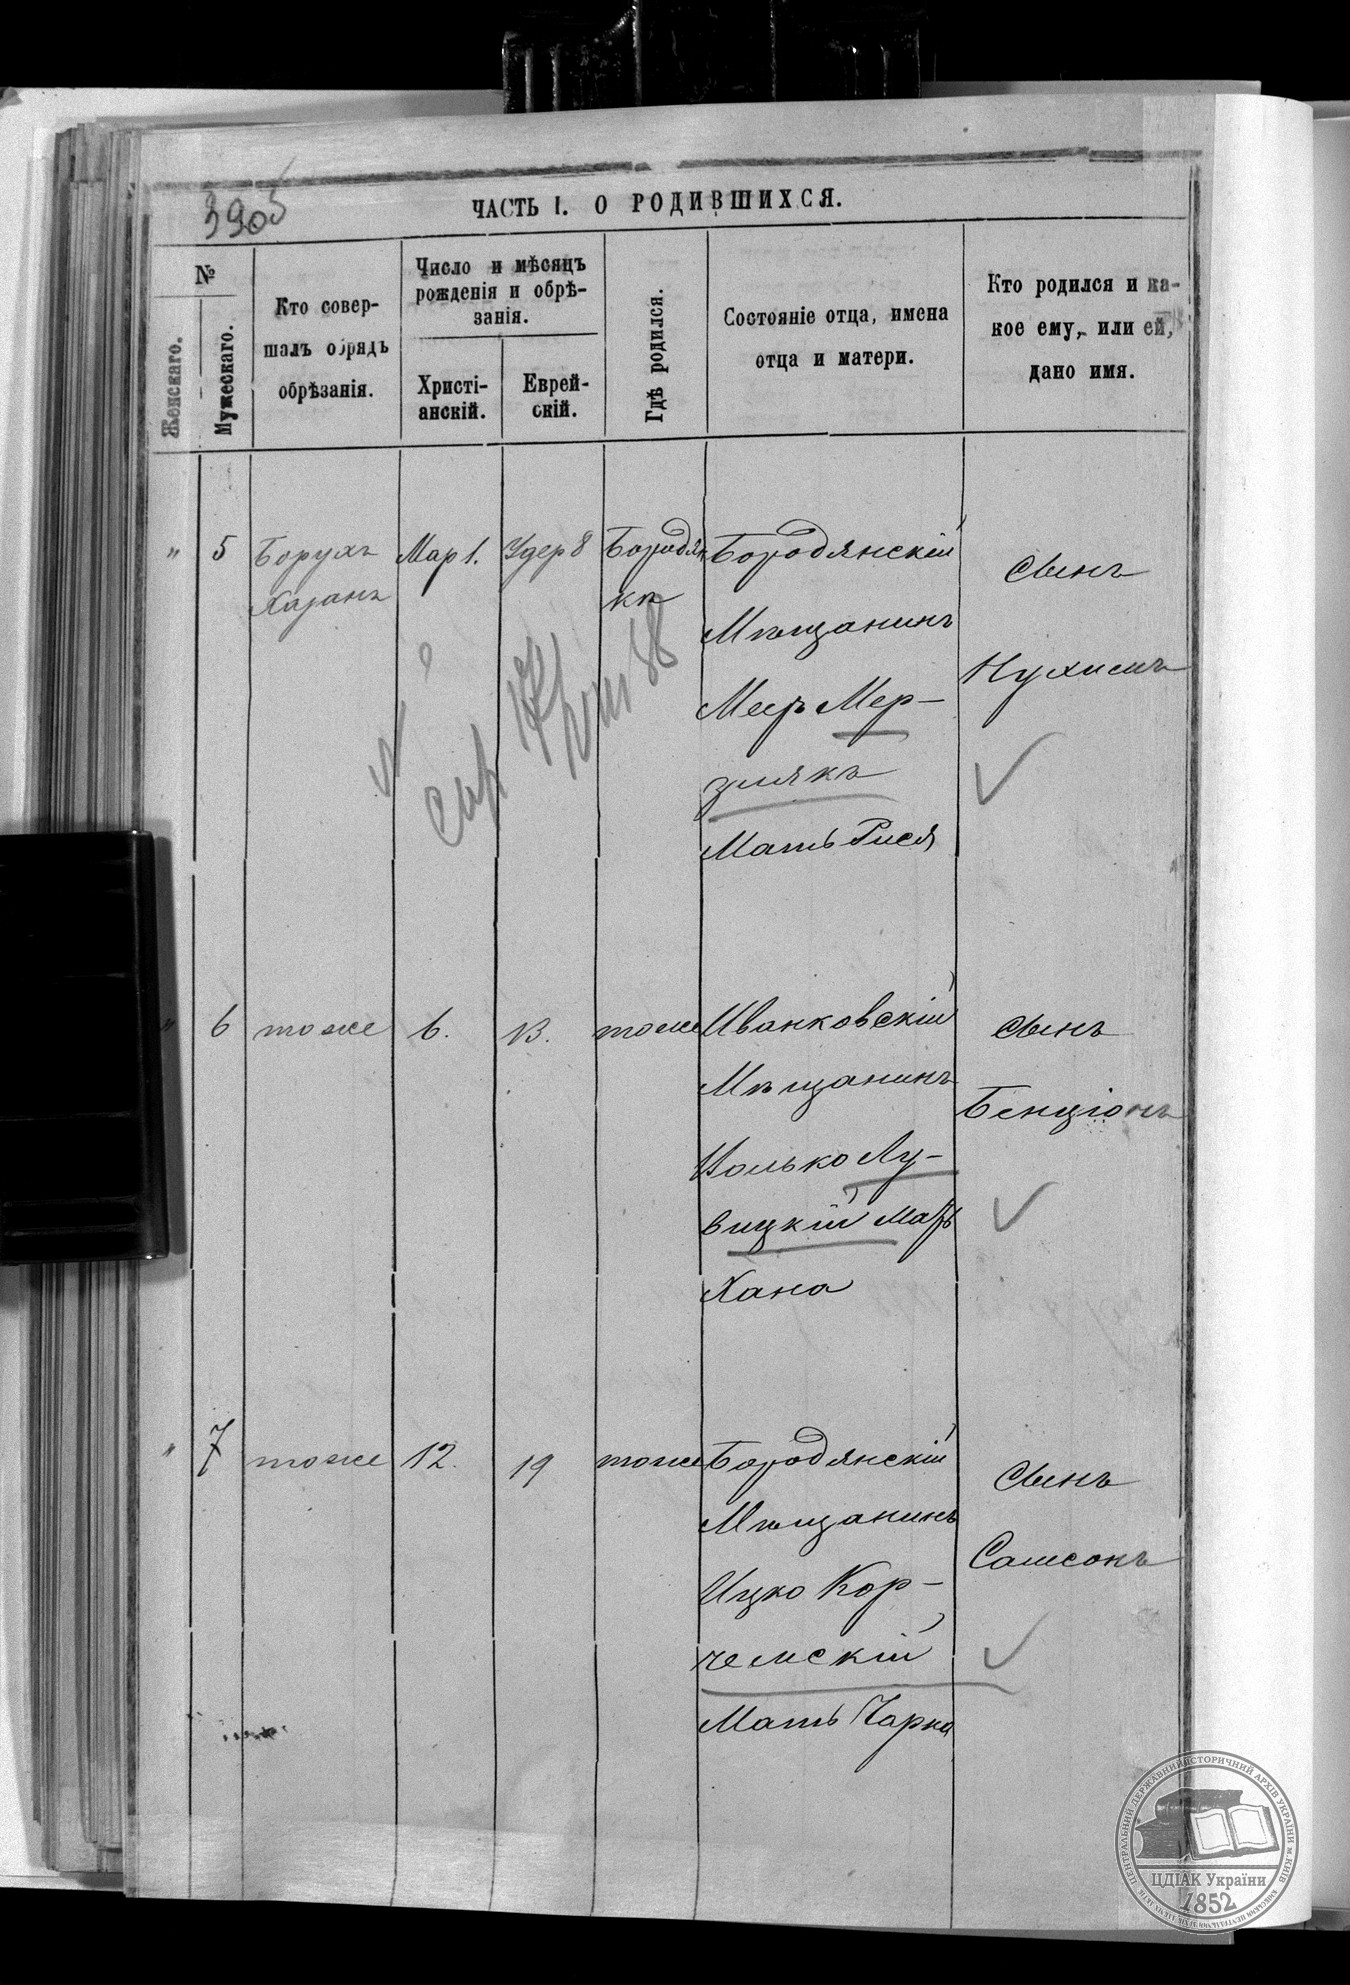 3905
ЧАСТЬ I. О РОДИВШИХСЯ.
№
Женскаго.
Мужескаго.
Кто совер-
шалъ обрядъ
обрѣзанія.
Число и мѣсяцъ
рожденія и обрѣ-
занія.
Христі-
анскій.
Еврей-
скій.
Гдѣ родился.
Состояніе отца, имена
отца и матери.
Кто родился и ка-
кое ему, или ей,
дано имя.
" 5 Борухъ Мар 1. Удер 8 Бородян Бородянскій
Хазанъ
ка
Мѣщанинъ
Меер Мер-
злякъ
Мать Рися
сынъ
Нухимъ
" 6 тоже 6. 13. тоже Иванковскій
Мѣщанинъ
Волько Лу-
вицкій Мать
Хана
сынъ
Бенціонъ
" 7 тоже 12. 19 тоже Бородянскій
Мѣщанинъ
Ицко Кор-
чемскій
Мать Чарна
сынъ
Самсонъ
ЦЕНТРАЛЬНИЙ ДЕРЖАВНИЙ ІСТОРИЧНИЙ АРХІВ УКРАЇНИ м.КИЇВ
ЦДІАК України
1852